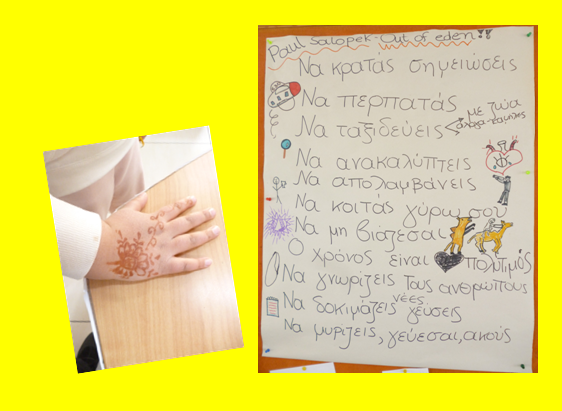 Paul Salopek - Out of eden!!
Να κρατάς σημειώσεις
Να περπατάς
Να ταξιδεύεις
με ζώα
άλογα-καμήλες
Να ανακαλύπτεις
Να απολαμβάνεις
Να κοιτάς γύρω σου
Να μη βιάζεσαι
Ο χρόνος είναι πολύτιμος
Να γνωρίζεις τους ανθρώπους
Να δοκιμάζεις νέες γεύσεις
Να μυρίζεις, γεύεσαι, ακούς